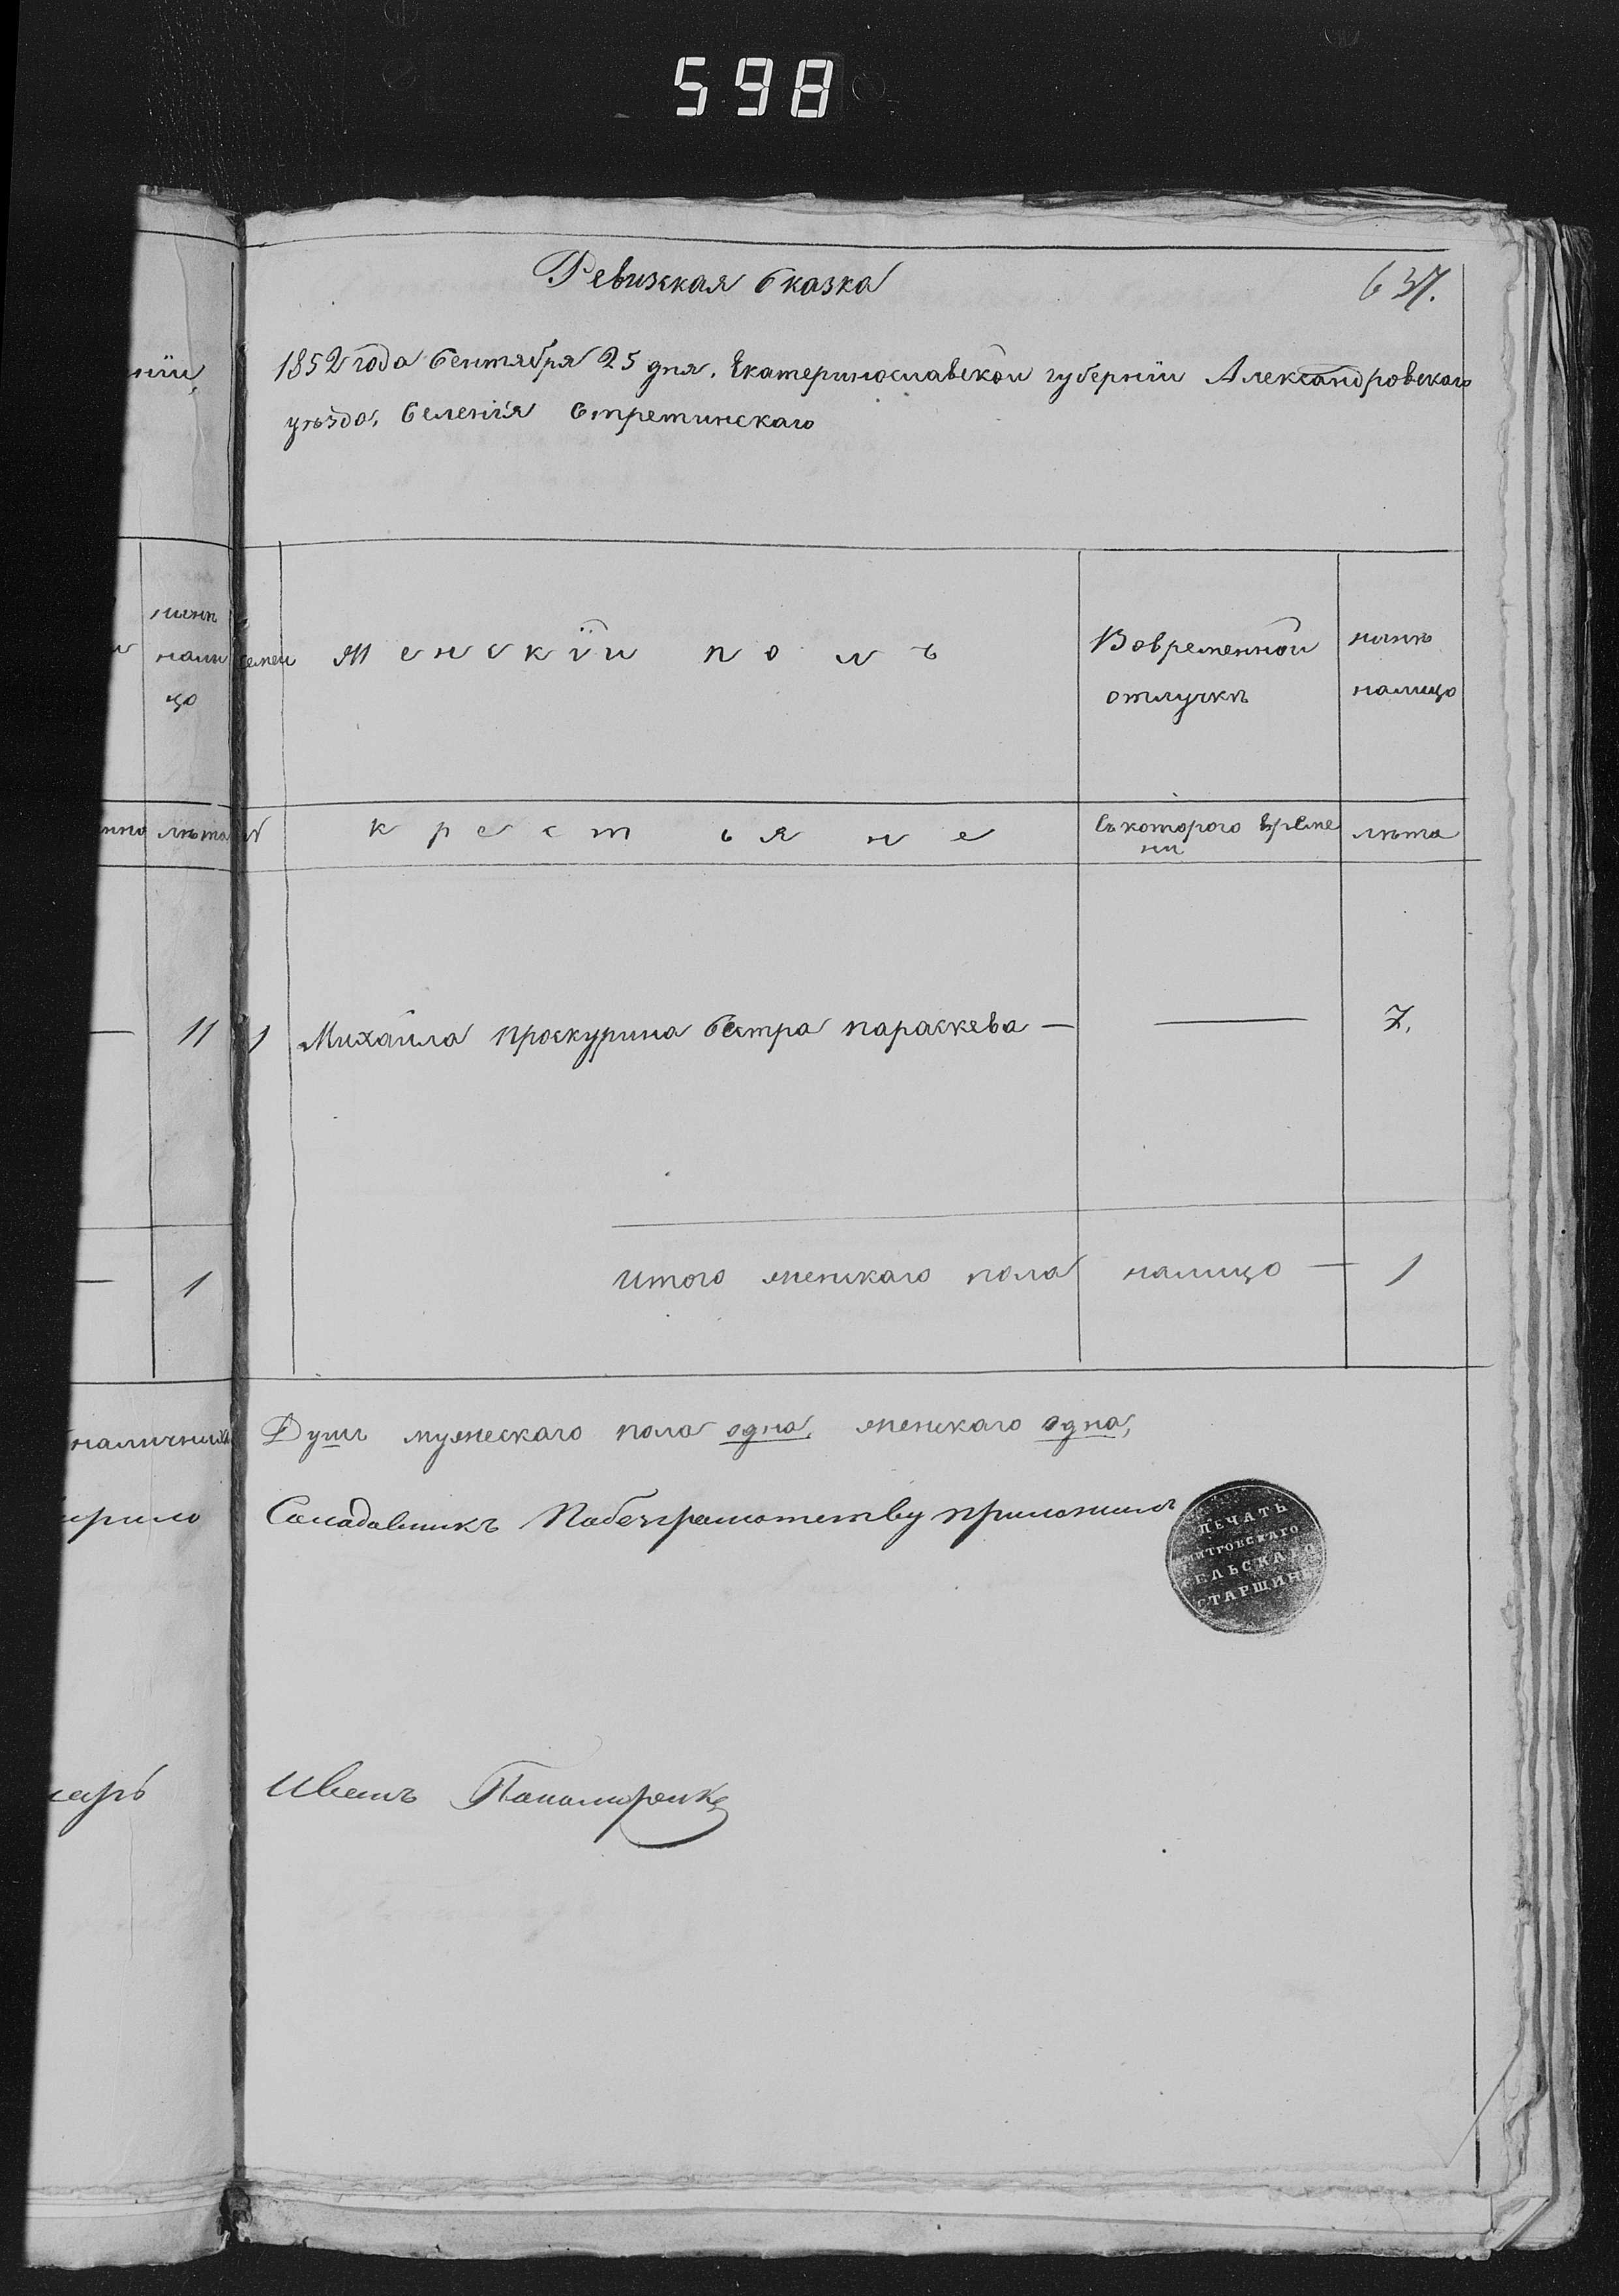 598
Ревизская Сказка
637.
1852 года Сентября 25 дня, Екатеринославской губернïи Александровскаго
уѣзда, Селенïя Стретинскаго
нïи,
нынѣ
нали
цо
семеи
Женскïй полъ
Вовременной
отлучкѣ
нынѣ
налицо
лѣта
№
крестьяне
съкоторого време
ни
лѣта
11
1
Михайла Проскурина Сестра параскева —
—
7.
1
Итого женскаго пола налицо — 1
наличныхъ
Душъ мужескаго пола одна, женскаго одна,
Саладовникъ Побезграмотству приложилъ
ПЕЧАТЬ
МИТРОВСКАГО
СЕЛЬСКАГО
СТАРШИНЫ
Иванъ Панамаренко